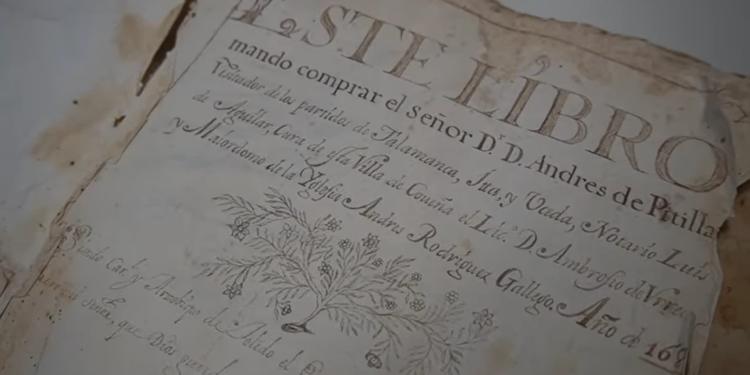 ESTE LIBRO
mando comprar el Señor D.r D. Andres de Pitilla
Visitador de los partidos de Talamanca, Ita, y Uzeda, Notario Luis
de Aguilar, Cura de esta Villa de el Lic.o D. Ambrosio de
y Maiordomo de la Yglesia Andres Rodriguez Gallego. Año de 168
Siendo Car.l y Arzobispo de Toledo el
señor, que Dios